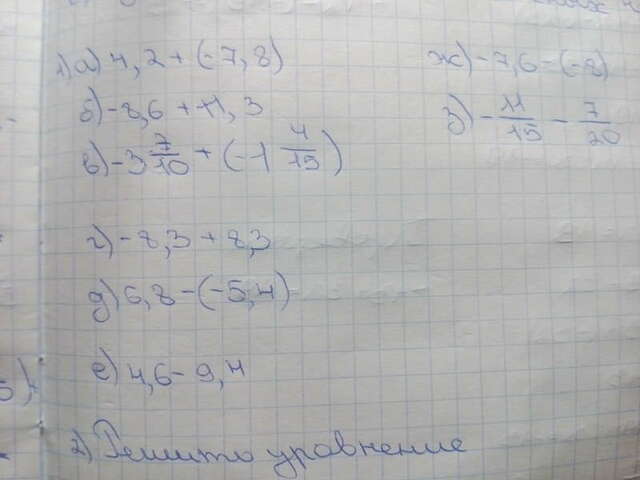 1) а) 4,2 + (-7,8)
б) -8,6 + 11,3
в) -3 7/10 + (-1 4/15)
г) -8,3 + 8,3
д) 6,8 - (-5,4)
е) 4,6 - 9,4
ж) -7,6 - (-8)
з) - 11/15 - 7/20
2) Решито уровнение